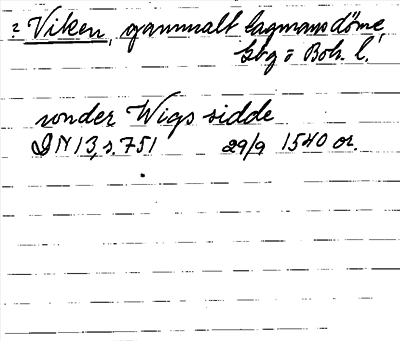 ? Viken, gammalt lagmansdöme,
Gbg o Boh. l.
sonder Wigs sidde
DN 13, s. 751 29/9 1540 or.